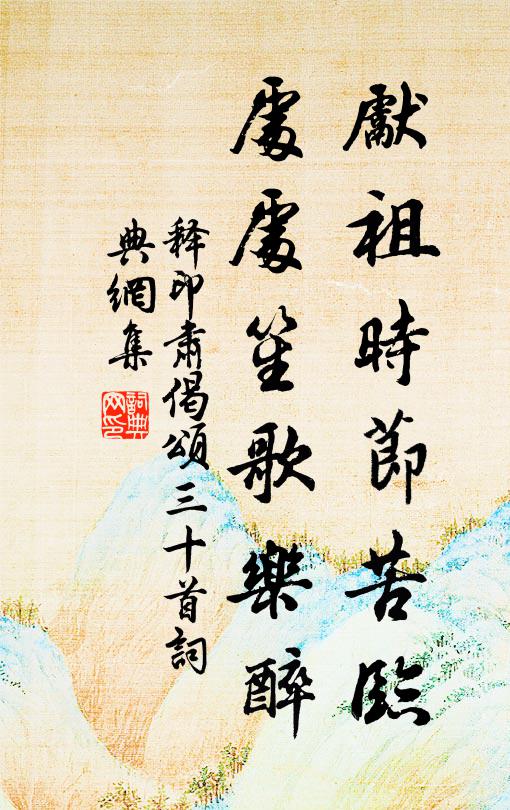 獻祖時節苦臨
處處笙歌樂醉
释印肅偈頌三十首詞
典網集
詞典
网印